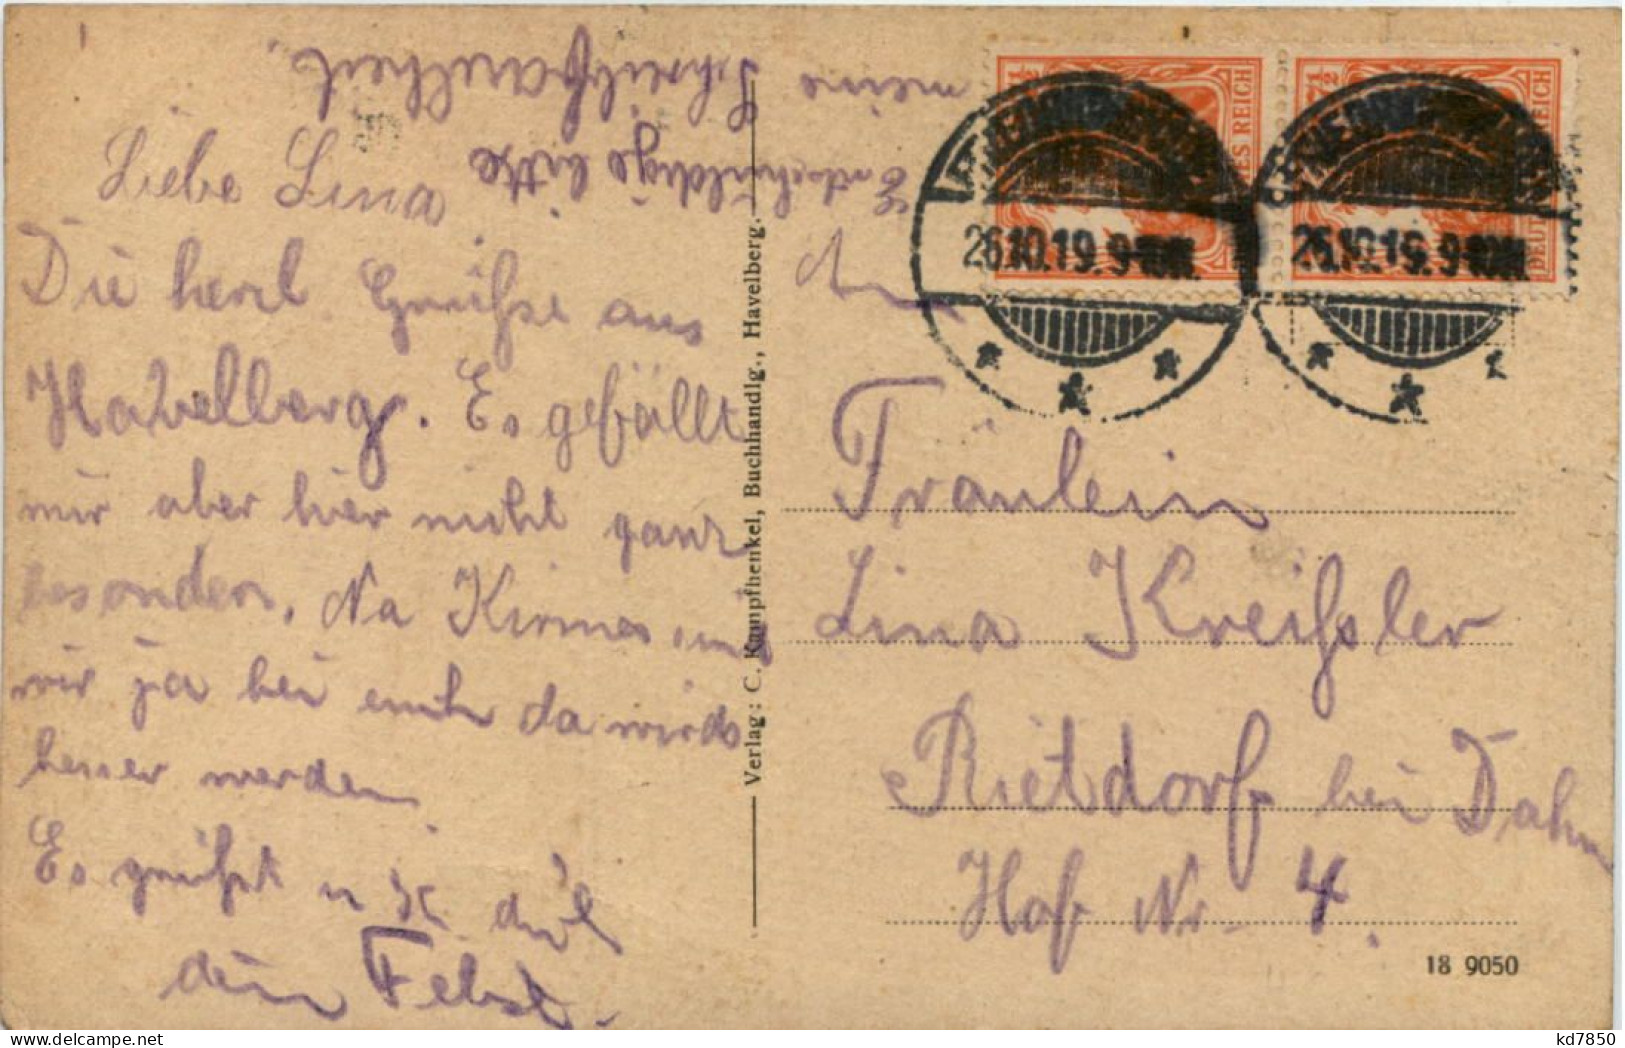 Liebe Lina
Die herzl. Grüsse aus
Havelberg. Es gefällt
mir aber hier nicht ganz
besonders. Na Kirmes sind
wir ja bei euch da wirds
besser werden
Es grüsst u. k. dich
dein
Entschuldige bitte
meine Schreibfaulheit.
An
Fräulein
Lina Kreißler
Rietdorf bei Dahme
Hof Nr 4.
Verlag: C. Kampfhenkel, Buchhandlg., Havelberg.
18 9050
26.10.19. 9-10V.
26.10.19. 9-10V.
DEUTSCHES REICH
7½
kd7850